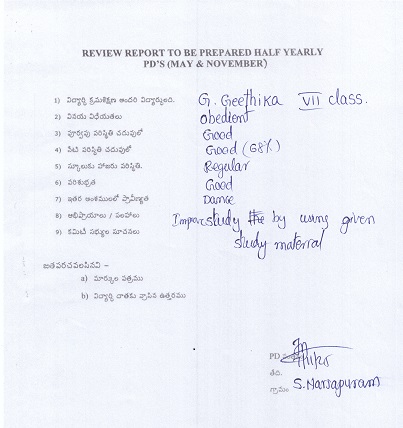 REVIEW REPORT TO BE PREPARED HALF YEARLY
PD'S (MAY & NOVEMBER)
1) విద్యార్థి క్రమశిక్షణ అందరి విద్యార్థులది. G. Geethika VII class.
2) వినయ విధేయతలు obedient
3) పూర్వపు పరిస్థితి చదువులో Good
4) నేటి పరిస్థితి చదువులో Good (68%)
5) స్కూలుకు హాజరు పరిస్థితి. Regular
6) పరిశుభ్రత Good
7) ఇతర అంశములలో ప్రావీణ్యత Dance
8) అభిప్రాయాలు / సలహాలు study by using given
9) కమిటీ సభ్యుల సూచనలు study material
జతపరచవలసినవి –
a) మార్కుల పత్రము
b) విద్యార్థి దాతకు వ్రాసిన ఉత్తరము
PD
తేది.
గ్రామం S. Narsapuram